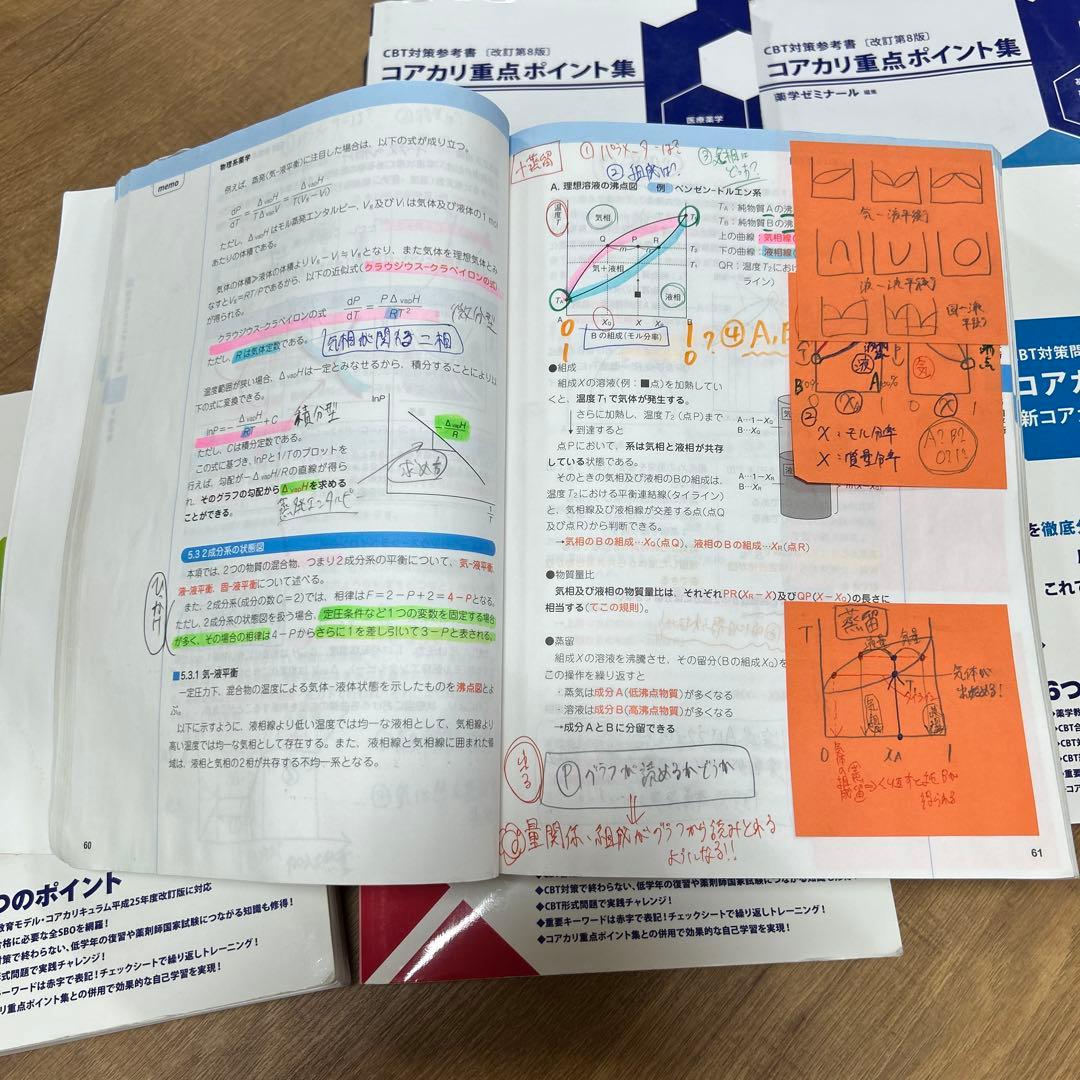 CBT対策参考書〔改訂第8版〕
コアカリ重点ポイント集
医療薬学
CBT対策参考書〔改訂第8版〕
コアカリ重点ポイント集
薬学ゼミナール 編集
物理系薬学
memo
例えば，蒸発(気-液平衡)に注目した場合は，以下の式が成り立つ。
dP/dT = ΔvapH/TΔvapV = ΔvapH/T(Vg−Vl)
ただし，ΔvapHはモル蒸発エンタルピー，Vg及びVlは気体及び液体の1 mol
あたりの体積である。
気体の体積≫液体の体積よりVg−Vl≒Vgとなり，また気体を理想気体とみ
なすとVg=RT/Pであるから，以下の近似式(クラウジウス-クラペイロンの式)
が得られる。
クラウジウス-クラペイロンの式 dP/dT = PΔvapH/RT²
微分型
ただし，Rは気体定数である。
気相が関る二相
温度範囲が狭い場合，ΔvapHは一定とみなせるから，積分することにより以
下の式に変換できる。
lnP=−ΔvapH/RT+C
積分型
ただし，Cは積分定数である。
この式に基づき，lnPと1/Tのプロットを
行えば，勾配が−ΔvapH/Rの直線が得ら
れ，そのグラフの勾配からΔvapHを求める
ことができる。
蒸発エンタルピ
lnP
−ΔvapH/R
求め方
1/T
5.3 2成分系の状態図
本項では，2つの物質の混合物，つまり2成分系の平衡について，気-液平衡，
液-液平衡，固-液平衡について述べる。
また，2成分系(成分の数C=2)では，相律はF=2−P+2=4−Pとなる。
ただし，2成分系の状態図を扱う場合，定圧条件など1つの変数を固定する場合
が多く，その場合の相律は4−Pからさらに1を差し引いて3−Pと表される。
■5.3.1 気-液平衡
一定圧力下，混合物の温度による気体-液体状態を示したものを沸点図とよ
ぶ。
以下に示すように，液相線より低い温度では均一な液相として，気相線より
高い温度では均一な気相として存在する。また，液相線と気相線に囲まれた領
域は，液相と気相の2相が共存する不均一系となる。
60
+蒸留
①パラメーターは？
②組成は？
③気相は
どっち？
A. 理想溶液の沸点図 例 ベンゼン-トルエン系
温度T
気相
気+液相
液相
Q P R
TA
A XQ X XR B
Bの組成(モル分率)
TA：純物質Aの沸
TB：純物質Bの沸
上の曲線：気相線(
下の曲線：液相線(
QR：温度T2におけ
ライン)
0
1
1
0
？④A,
●組成
組成Xの溶液(例：■点)を加熱してい
くと，温度T1で気体が発生する。
さらに加熱し，温度T2(点P)まで
到達すると
点Pにおいて，系は気相と液相が共存
している状態である。
そのときの気相及び液相のBの組成は，
温度T2における平衡連結線(タイライン)
と，気相線及び液相線が交差する点(点Q
及び点R)から判断できる。
→気相のBの組成…XQ(点Q)，液相のBの組成…XR(点R)
A…1-XQ
B…XQ
A…1-XR
B…XR
●物質量比
気相及び液相の物質量比は，それぞれPR(XR−X)及びQP(X−XQ)の長さに
相当する(てこの規則)。
●蒸留
組成Xの溶液を沸騰させ，その留分(Bの組成XQ)を
この操作を繰り返すと
・蒸気は成分A(低沸点物質)が多くなる
・溶液は成分B(高沸点物質)が多くなる
→成分AとBに分留できる
Ⓟグラフが読めるかどうか
量関係、組成がグラフから読みとれる
ようになる!!
61
気-液平衡
液-液平衡
固-液
平衡
液
気
沸点
B
A
0
1
0
②
X：モル分率
X：質量分率
A？B？
0？1？
蒸留
T
タイライン
気体が
出始める！
0 XA 1
気体の組成
コアカ
CBT対策問
新コアカ
を徹底分
これで
6つ
つのポイント
教育モデル・コアカリキュラム平成25年度改訂版に対応
合格に必要な全SBOを網羅！
対策で終わらない、低学年の復習や薬剤師国家試験につながる知識も修得！
形式問題で実践チャレンジ！
ーワードは赤字で表記！チェックシートで繰り返しトレーニング！
リ重点ポイント集との併用で効果的な自己学習を実現！
◆CBT対策で終わらない、低学年の復習や薬剤師国家試験につながる知識も修得！
◆CBT形式問題で実践チャレンジ！
◆重要キーワードは赤字で表記！チェックシートで繰り返しトレーニング！
◆コアカリ重点ポイント集との併用で効果的な自己学習を実現！